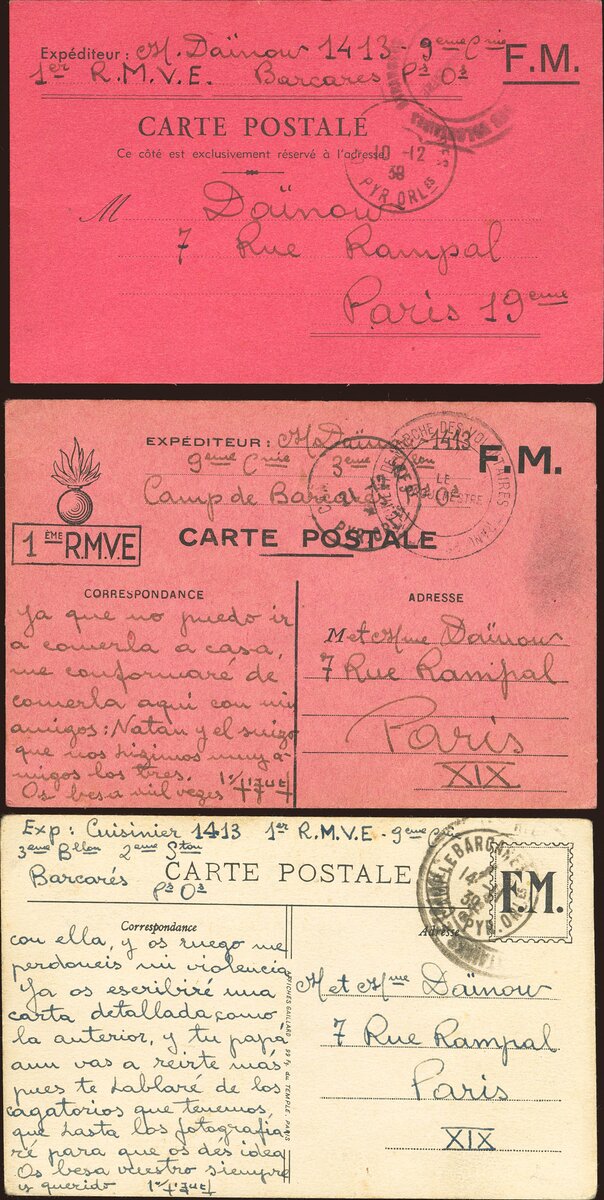 Expéditeur : M. Daïnow 1413 - 9eme Cnie
F.M.
1er R.M.V.E. Barcares Ps Os
CARTE POSTALE
Ce côté est exclusivement réservé à l'adresse
10 -12
39
PYR. ORLES
M Daïnow
7 Rue Rampal
Paris 19eme
EXPÉDITEUR : M. Daïnow 1413
F.M.
9eme Cnie 3eme
Camp de Barcarès
1 ÈME R.M.V.E
CARTE POSTALE
CORRESPONDANCE
ADRESSE
Ya que no puedo ir
a comerla a casa,
me conformaré de
comerla aquí con mis
amigos: Natan y el suizo
que nos hizimos muy a-
migos los tres.
Os besa mil vezes
M et Mme Daïnow
7 Rue Rampal
Paris
XIX
Exp : Cuisinier 1413 1er R.M.V.E - 9eme Cnie
3eme Bllon 2eme Ston
Barcarés Ps Os
CARTE POSTALE
LE BARCARES
14 -
39
PYR. ORLES
F.M.
Correspondance
Adresse
con ella, y os ruego me
perdoneis mi violencia
Ya os escribiré una
carta detallada, como
la anterior, y tu papá
aun vas a reirte más
pues te hablaré de los
cagatorios que tenemos,
que hasta los fotografia-
ré para que os dés idea
Os besa vuestro siempre
y querido
M et Mme Daïnow
7 Rue Rampal
Paris
XIX